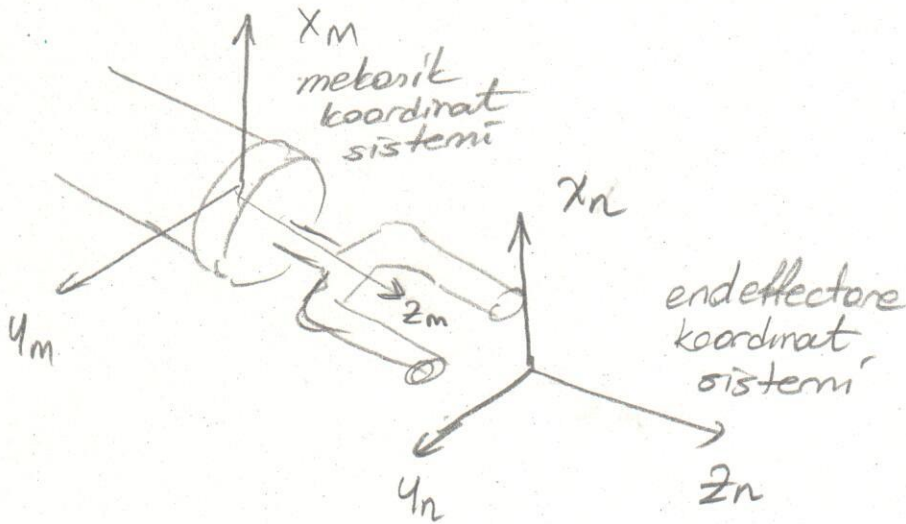 Xm
mekanik
koordinat
sistemi
ym
zm
xn
endeffectore
koordinat
sistemi
yn
zn